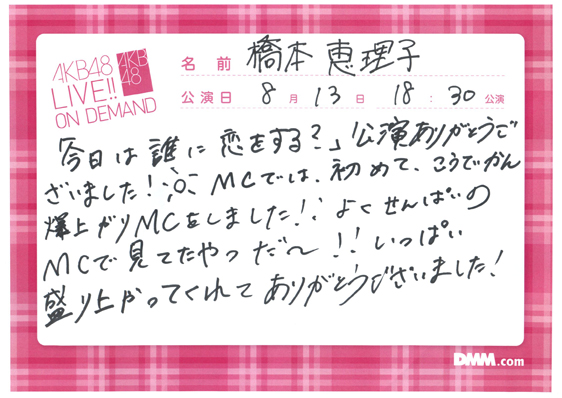 AKB48
LIVE!!
ON DEMAND
AKB
48
名前 橋本 恵理子
公演日 8月13日 18:30公演
「今日は誰に恋をする?」公演ありがとうご
ざいました! MCでは、初めて、こうでかん
爆上がりMCをしました!! よくせんぱいの
MCで見てたやつだ〜!! いっぱい
盛り上がってくれてありがとうございました!
DMM.com